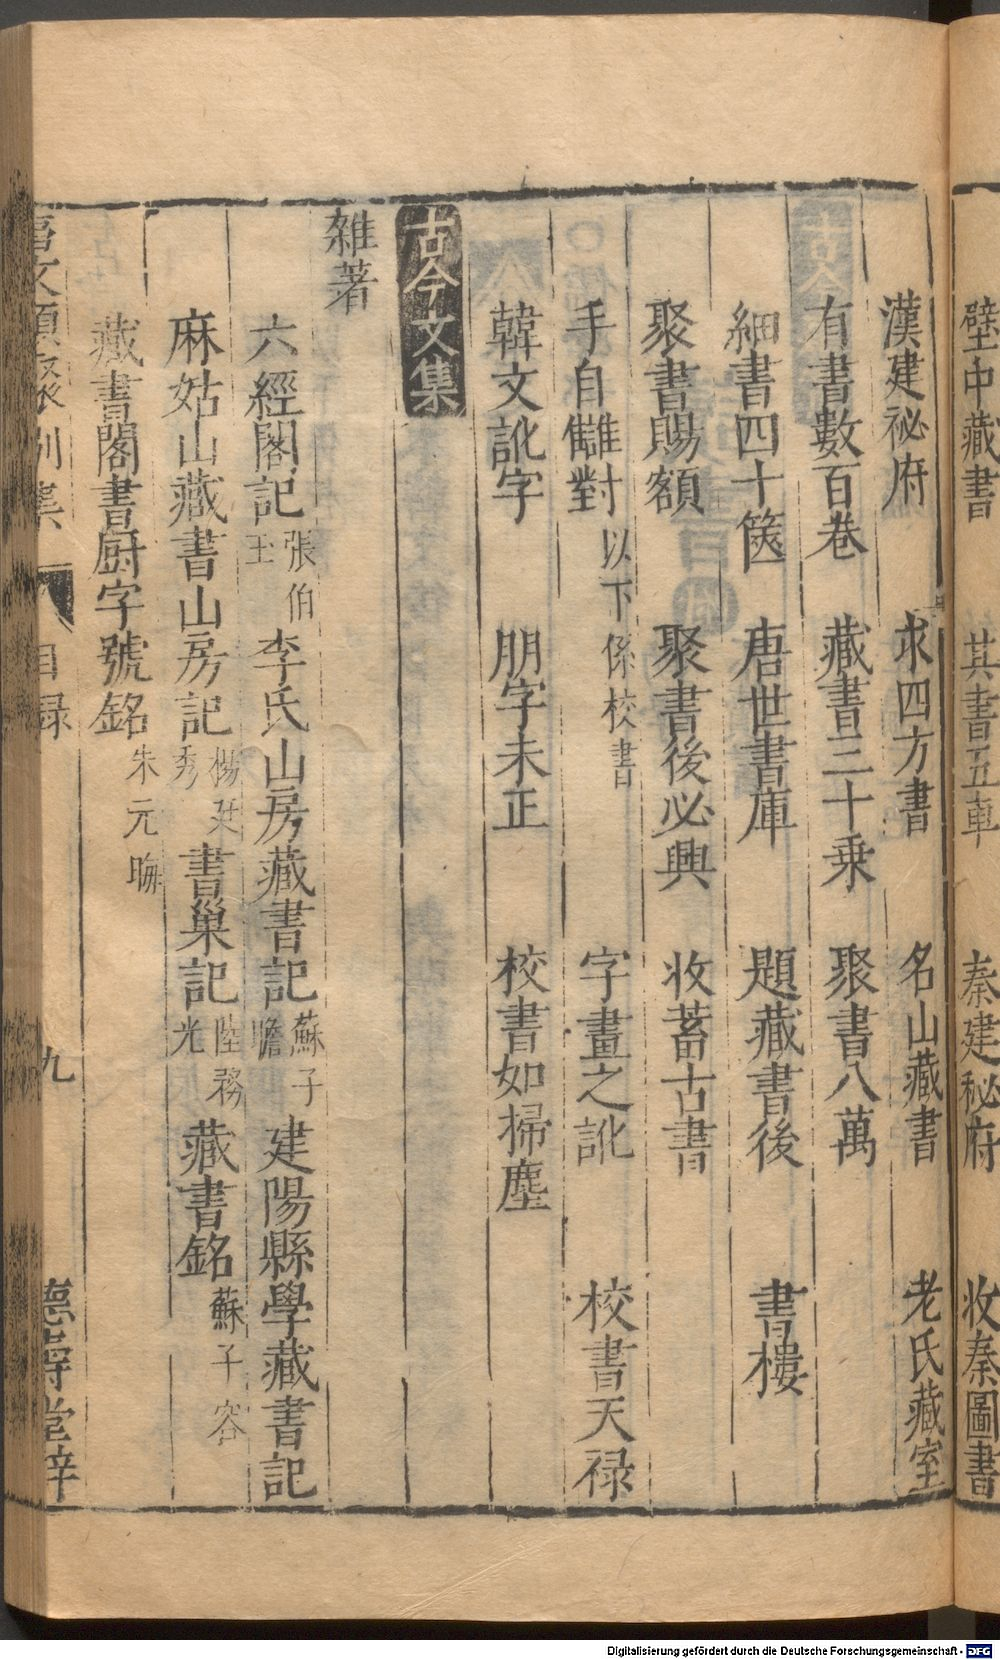 壁中藏書 其書五車 秦建秘府 收秦圖書
漢建祕府 求四方書 名山藏書 老氏藏室
有書數百卷 藏書三十乗 聚書八萬
細書四十篋 唐世書庫 題藏書後 書樓
聚書賜額 聚書後必興 收蓄古書
手自讎對 以下係校書 字畫之訛 校書天禄
韓文訛字 朋字未正 校書如掃塵
古今文集
雜著
六經閣記 張伯玉 李氏山房藏書記 蘇子瞻 建陽縣學藏書記
麻姑山藏書山房記 楊 秀 書巢記 陸務光 藏書銘 蘇子容
藏書閣書厨字號銘 朱元晦
事文類聚别集 目録 九 德壽堂梓
Digitalisierung gefördert durch die Deutsche Forschungsgemeinschaft - DFG